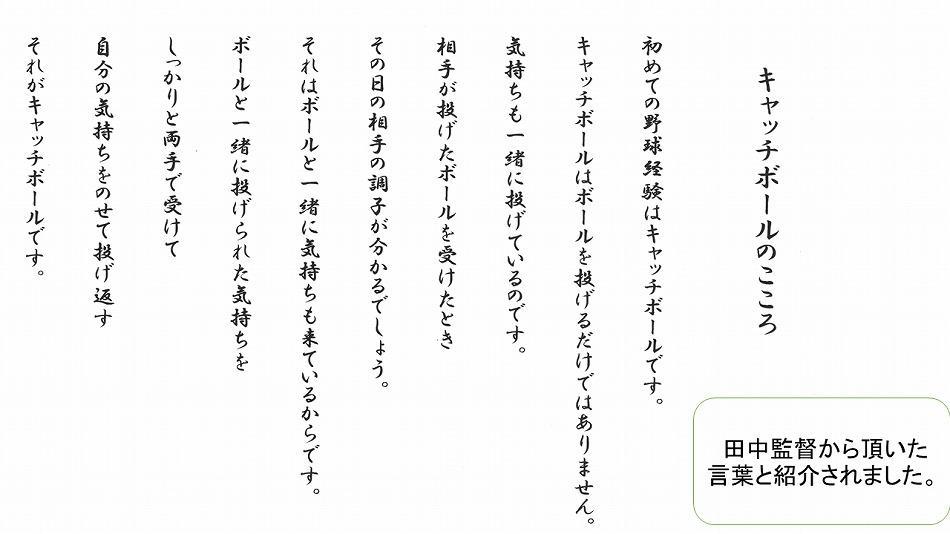 キャッチボールのこころ
初めての野球経験はキャッチボールです。
キャッチボールはボールを投げるだけではありません。
気持ちも一緒に投げているのです。
相手が投げたボールを受けたとき
その日の相手の調子が分かるでしょう。
それはボールと一緒に気持ちも来ているからです。
ボールと一緒に投げられた気持ちを
しっかりと両手で受けて
自分の気持ちをのせて投げ返す
それがキャッチボールです。
田中監督から頂いた
言葉と紹介されました。